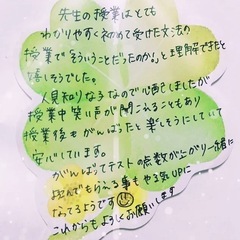 先生の授業はとても
わかりやすく初めて受けた文法の
授業で「そういうことだったのか」と理解できたと
嬉しそうでした。
人見知りなるなので心配しましたが
授業中笑い声が聞こえることもあり
授業後もがんばったと楽しそうにしていて
安心しています。
がんばってテストの点数が上がり一緒に
喜んでもらえる事もやる気UPに
なってるようです
これからもよろしくお願いします